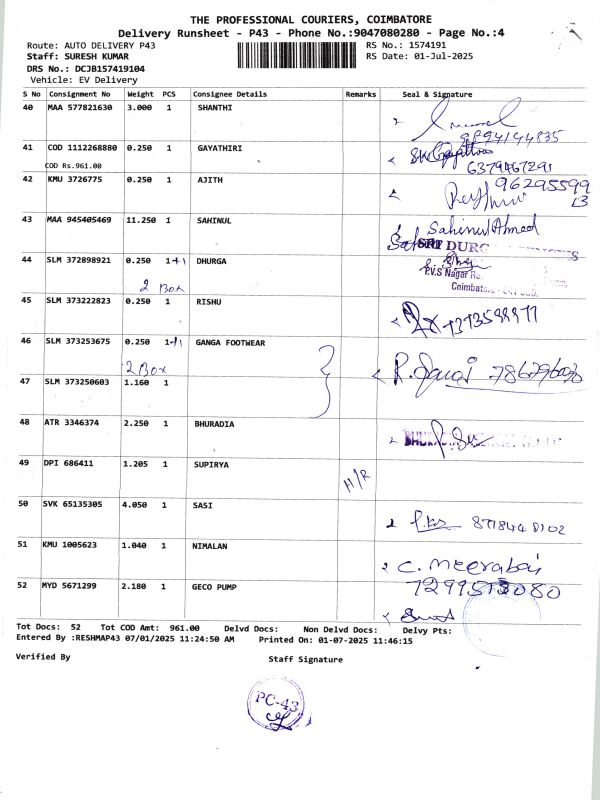 THE PROFESSIONAL COURIERS, COIMBATORE
Delivery Runsheet - P43 - Phone No.:9047080280 - Page No.:4
Route: AUTO DELIVERY P43 RS No.: 1574191
Staff: SURESH KUMAR RS Date: 01-Jul-2025
DRS No.: DCJB157419104
Vehicle: EV Delivery
S No Consignment No Weight PCS Consignee Details Remarks Seal & Signature
40 MAA 577821630 3.000 1 SHANTHI
9894144835
41 COD 1112268880 0.250 1 GAYATHIRI
COD Rs.961.00 6379467291
42 KMU 3726775 0.250 1 AJITH 96295599
13
43 MAA 945405469 11.250 1 SAHINUL Sahinul Ahmed
44 SLM 372898921 0.250 1+1 DHURGA
2 Box
P.V.S Nagar
45 SLM 373222823 0.250 1 RISHU
46 SLM 373253675 0.250 1+1 GANGA FOOTWEAR
2 Box
47 SLM 373250603 1.160 1
48 ATR 3346374 2.250 1 BHURADIA
49 DPI 686411 1.205 1 SUPIRYA H/R
50 SVK 65135305 4.050 1 SASI
51 KMU 1005623 1.040 1 NIMALAN C. Meerabai
52 MYD 5671299 2.180 1 GECO PUMP
Tot Docs: 52 Tot COD Amt: 961.00 Delvd Docs: Non Delvd Docs: Delvy Pts:
Entered By :RESHMAP43 07/01/2025 11:24:50 AM Printed On: 01-07-2025 11:46:15
Verified By Staff Signature
PC-43